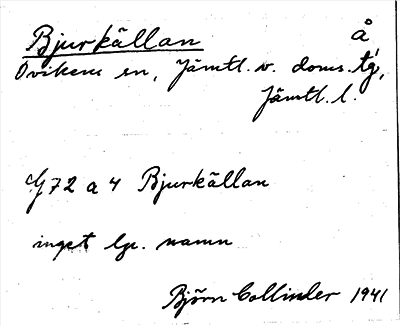 Bjurkällan å
Ovikens sn, Jämtl. v. doms. tg,
Jämtl. l.
G 72 a 4 Bjurkällan
inget lje. namn
Björn Collinder 1941